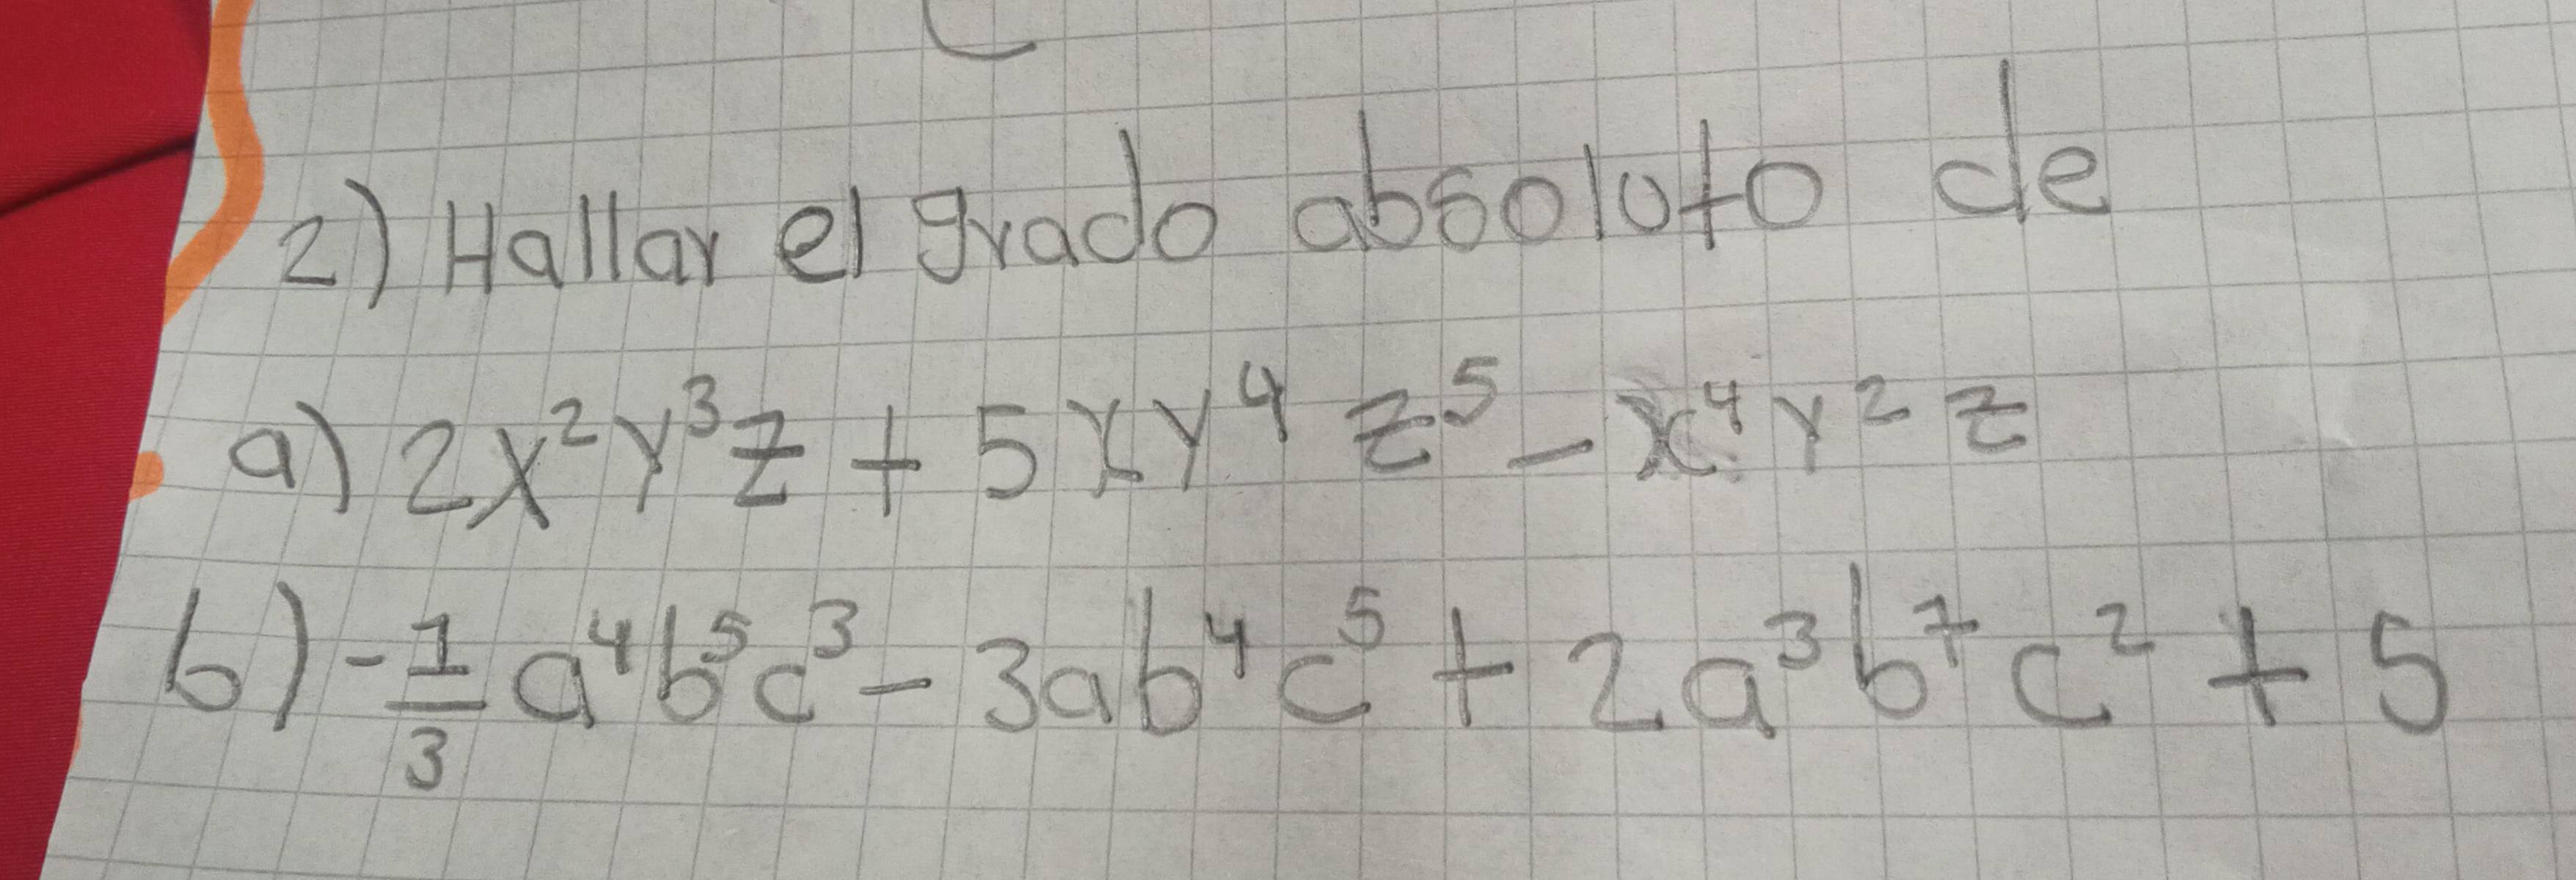 2) Hallar el grado absoluto de
a) 2x²y³z + 5xy⁴z⁵ - x⁴y²z
b) -1/3 a⁴b⁵c³ - 3ab⁴c⁵ + 2a³b⁷c² + 5